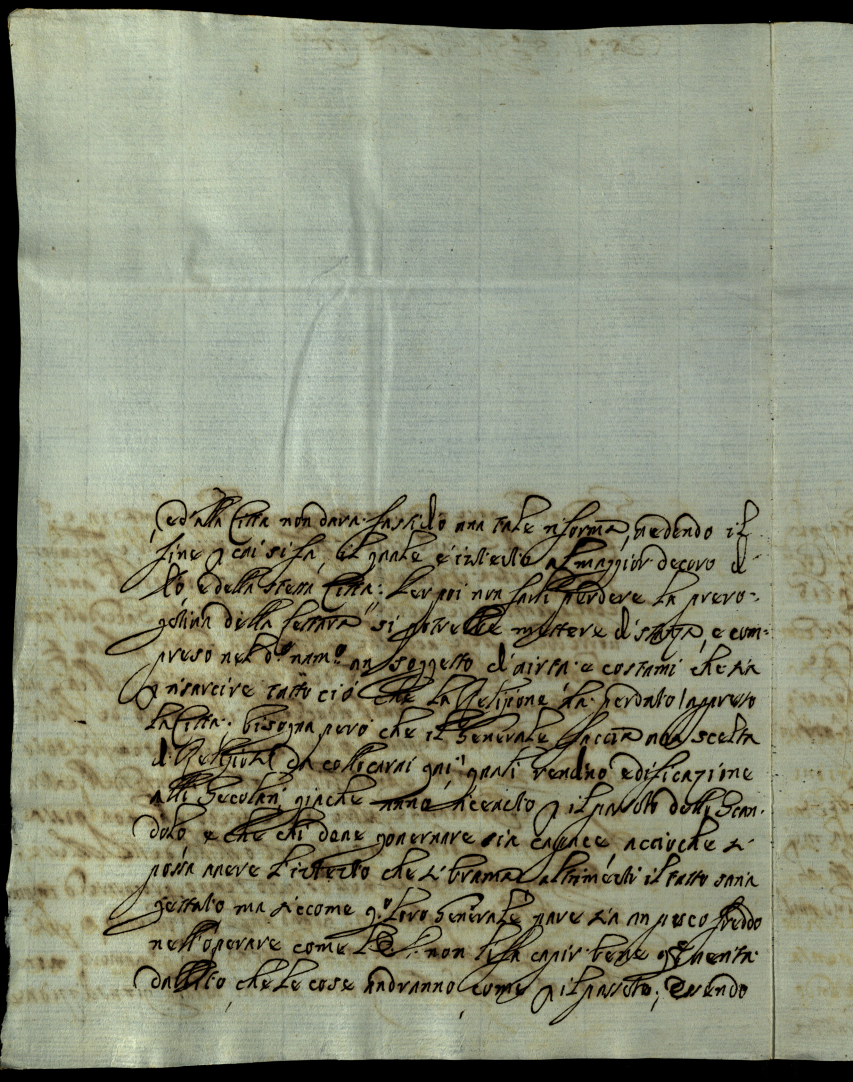 ed alla Città non darà fastidio una tale riforma, vedendo il
fine p cui si fa, il quale è inteso al maggior decoro d
lo e della stessa Città: Per poi non farli perdere la prero-
gativa della si potrebbe mettere di stanza, e com-
preso nel d.o num.o un soggetto d'airta e costumi che sia
p risarcire tutto ciò che la Religione ha perduto appresso
la Città; bisogna però che il Generale faccia una scelta
di Religiosi da collocarvi qui, quali rendino edificazione
alli Secolari, giache hanno ricevuto p il passato delli Scan-
dolo e che chi deve governare sia capace acciochè si
possa avere l'intento che si brama altrimenti il tutto saria
gettato ma siccome q.o loro Generale pare sia un poco freddo
nell'operare come non li fa capir bene
dubito che le cose andranno come p il passato; Essendo